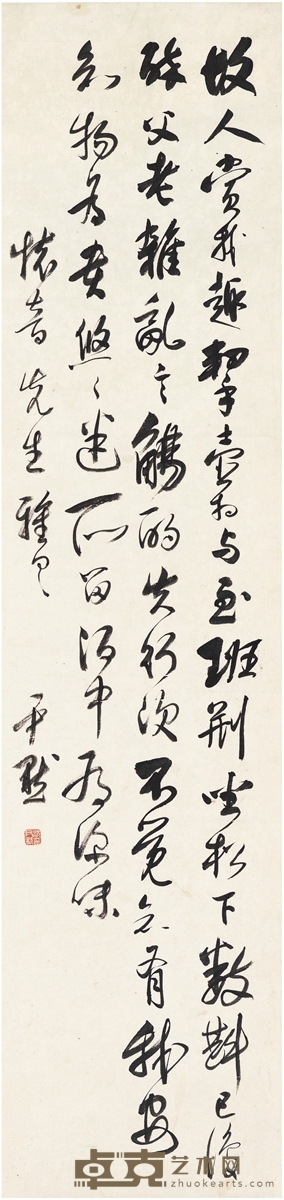 故人賞我趣挈壺相與至班荊坐松下數斟已復
醉父老雜亂言觴酌失行次不覺知有我安
知物為貴悠〻迷所留酒中有深味
懷音先生雅
尹默
卓克艺术网
zhuokearts.com